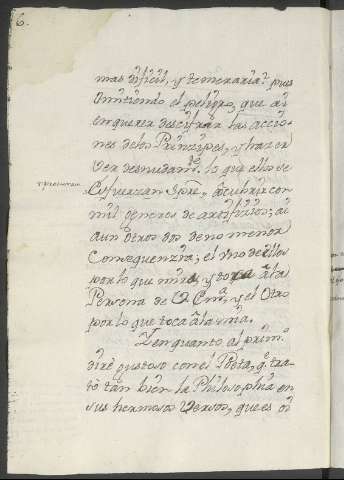 6.
mas dificil, y temeraria: pues
Omitiendo el peligro, que ai
en querer descifrar las accio-
nes delos Prinzipes, y hazer
Ver desnudamte. lo que ellos se
esfuerzan Spre, âcubrir con
mil generos de artifizios; ai
aun Otros dos de no menor
Consequenzia; el Vno de ellos
por lo que mira, y toca âla
Persona de V. Emª, y el Otro
por lo que toca âla mia.
Yen quanto al prim.º
diré gustoso con el Poeta, q̃ tra-
tó tan bien la Philosophia en
sus hermosos Versos, que es